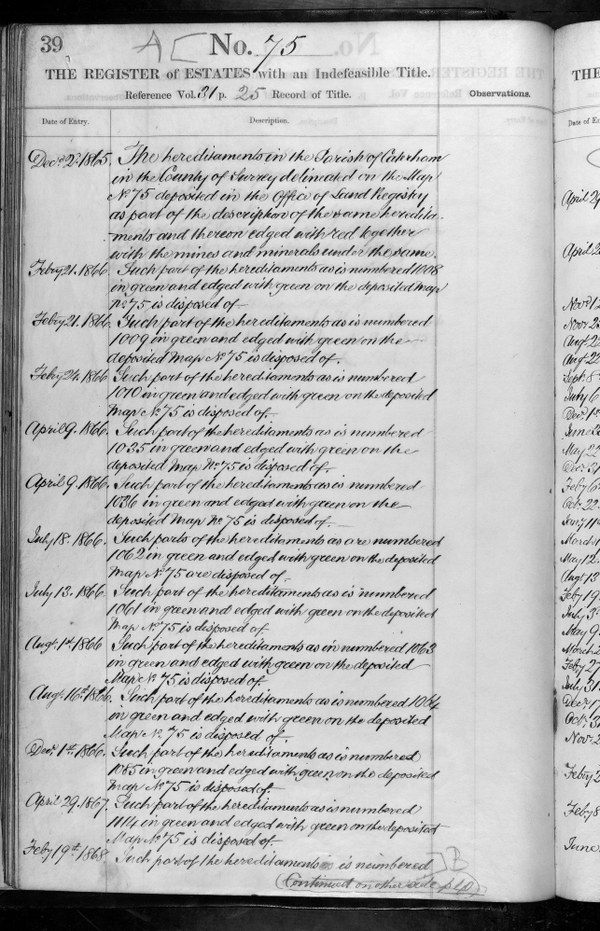 39 A[ No. 75
THE REGISTER of ESTATES with an Indefeasible Title.
Reference Vol. 31 p. 25 Record of Title. Observations.
Date of Entry. Description.
Decr. 2d. 1865. The hereditaments in the Parish of Caterham
in the County of Surrey delineated on the Map
No. 75 deposited in the Office of Land Registry
as part of the description of the same heredita-
-ments and thereon edged with red together
with the mines and minerals under the same.
Febry 21. 1866. Such part of the hereditaments as is numbered 1008
in green and edged with green on the deposited map
No. 75 is disposed of
Febry 21. 1866. Such part of the hereditaments as is numbered
1009 in green and edged with green on the
deposited Map No. 75 is disposed of.
Febry 24. 1866 Such part of the hereditaments as is numbered
1010 in green and edged with green on the deposited
Map No. 75 is disposed of.
April 9. 1866. Such part of the hereditaments as is numbered
1035 in green and edged with green on the
deposited Map No. 75 is disposed of
April 9. 1866. Such part of the hereditaments as is numbered
1036 in green and edged with green on the
deposited Map No. 75 is disposed of.
July 18. 1866. Such parts of the hereditaments as are numbered
1062 in green and edged with green on the deposited
Map No. 75 are disposed of.
July 13. 1866. Such part of the hereditaments as is numbered
1061 in green and edged with green on the deposited
Map No. 75 is disposed of.
Augt. 1st 1866 Such part of the hereditaments as in numbered 1063
in green and edged with green on the deposited
Map No. 75 is disposed of.
Augt. 16th. 1866. Such part of the hereditaments as is numbered 1064
in green and edged with green on the deposited
Map No. 75 is disposed of.
Decr. 1st. 1866. Such part of the hereditaments as is numbered
1085 in green and edged with green on the deposited
Map No. 75 is disposed of.
April 29. 1867. Such part of the hereditaments as is numbered
1114 in green and edged with green on the deposited
Map No. 75 is disposed of.
Feby 19th. 1868. Such part of the hereditaments is numbered ]B
(Continued on other side p 40)
THE
Date of E
April 2
April 2
Novr 1
Novr 2
Augt 2
Augt 2
Sept. 8
July 6
Decr. 1
June 2
May 22
Decr 31
Feby 6
Octr. 22
March
May 12
Augt 13
Feby 19
July 3
May 9
March 2
Feby 2
July 31
Decr 17
Octr. 3
Novr. 2
Feby 2
Feby 8
June